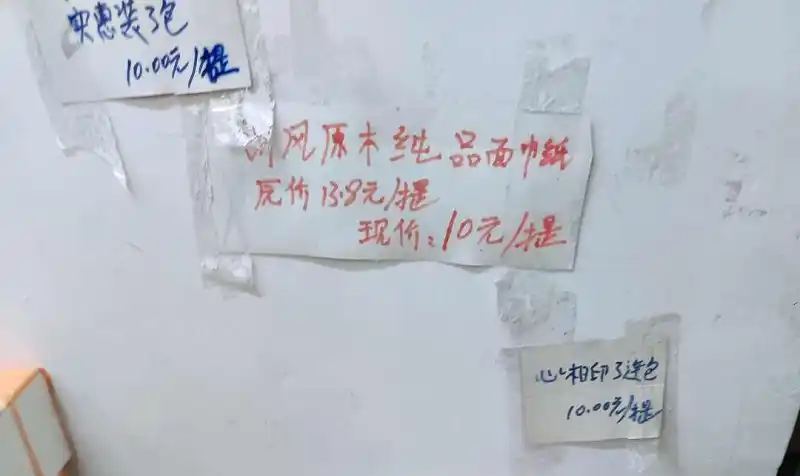 实惠装3包
10.00元/提
风原木纯品面巾纸
原价13.8元/提
现价:10元/提
心相印3连包
10.00元/提